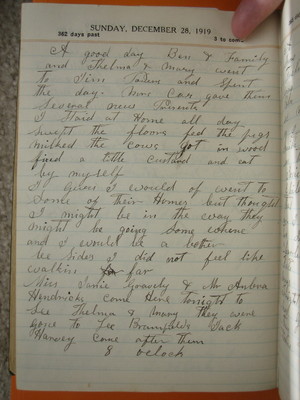 SUNDAY, DECEMBER 28, 1919
362 days past
3 to come
A good day Ben & Family
and Thelma & Mary went
to Jim and Spent
the day. Mrs Car gave them
Several new
I Staid at Home all day
Swept the floors fed the pigs
milked the cows got in wood
fixed a little Custard and eat
by myself
I Guess I would of went to
Some of their Homes but thought
I might be in the way they
might be going Some where
and I would be a bother
be Sides I did not feel like
walkin far
Miss Janie Gravely & Mr
Hendricks come Here tonight to
See Thelma & Mary they were
gone to Lee Jack
Harvey Come after them
8 oclock